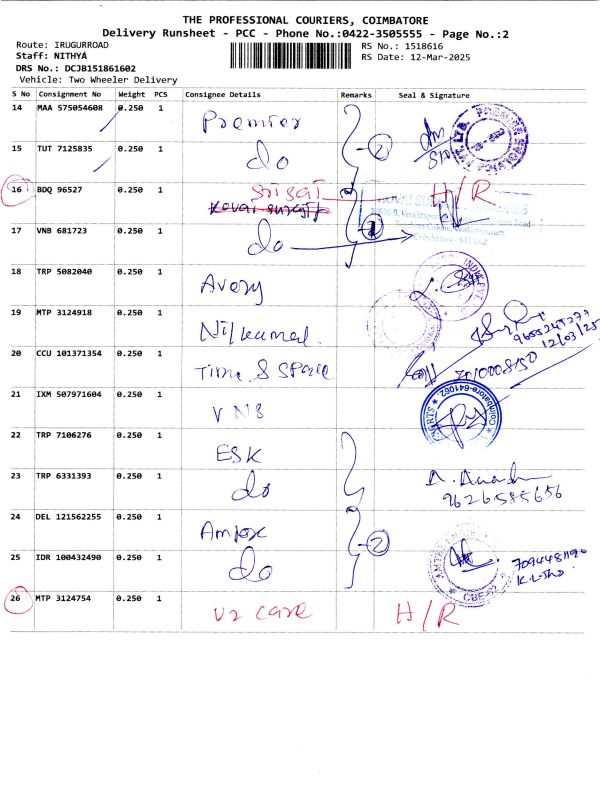 THE PROFESSIONAL COURIERS, COIMBATORE
Delivery Runsheet - PCC - Phone No.:0422-3505555 - Page No.:2
Route: IRUGURROAD
RS No.: 1518616
Staff: NITHYA
RS Date: 12-Mar-2025
DRS No.: DCJB151861602
Vehicle: Two Wheeler Delivery
S No Consignment No Weight PCS Consignee Details Remarks Seal & Signature
14 MAA 575054608 0.250 1 Premier 2
15 TUT 7125835 0.250 1 do
16 BDQ 96527 0.250 1 Sri Sai H/R
17 VNB 681723 0.250 1 do
18 TRP 5082040 0.250 1 Avery
19 MTP 3124918 0.250 1 Nilkamal
12/03/25
20 CCU 101371354 0.250 1 Time & Space
21 IXM 507971604 0.250 1 VNS
Coimbatore-641062
22 TRP 7106276 0.250 1 ESK
23 TRP 6331393 0.250 1 do
9626585656
24 DEL 121562255 0.250 1 Ampex 2
25 IDR 100432490 0.250 1 do
26 MTP 3124754 0.250 1 V2 care H/R